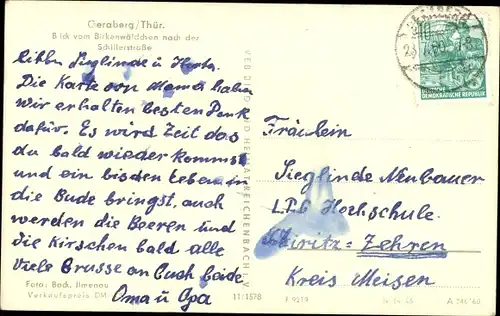 Geraberg/Thür.
Blick vom Birkenwäldchen nach der
Schillerstraße
Libbe Sieglinde u
Die Karte von Mama haben
wir erhalten besten Dank
dafür. Es wird Zeit das
du bald wieder kommst
und ein bisden Leben in
die Bude bringst, auch
werden die Beeren und
die Kirschen bald alle
Viele Grusse an Euch beide
Oma u Opa
Foto: Beck, Ilmenau
Verkaufspreis DM
11/1578
VEB BILD UND HEIMAT REICHENBACH I. V.
DEUTSCHE
DEMOKRATISCHE REPUBLIK
Fräulein
Sieglinde Neubauer
LPG Hochschule
Zehren
Kreis Meisen
F 9219